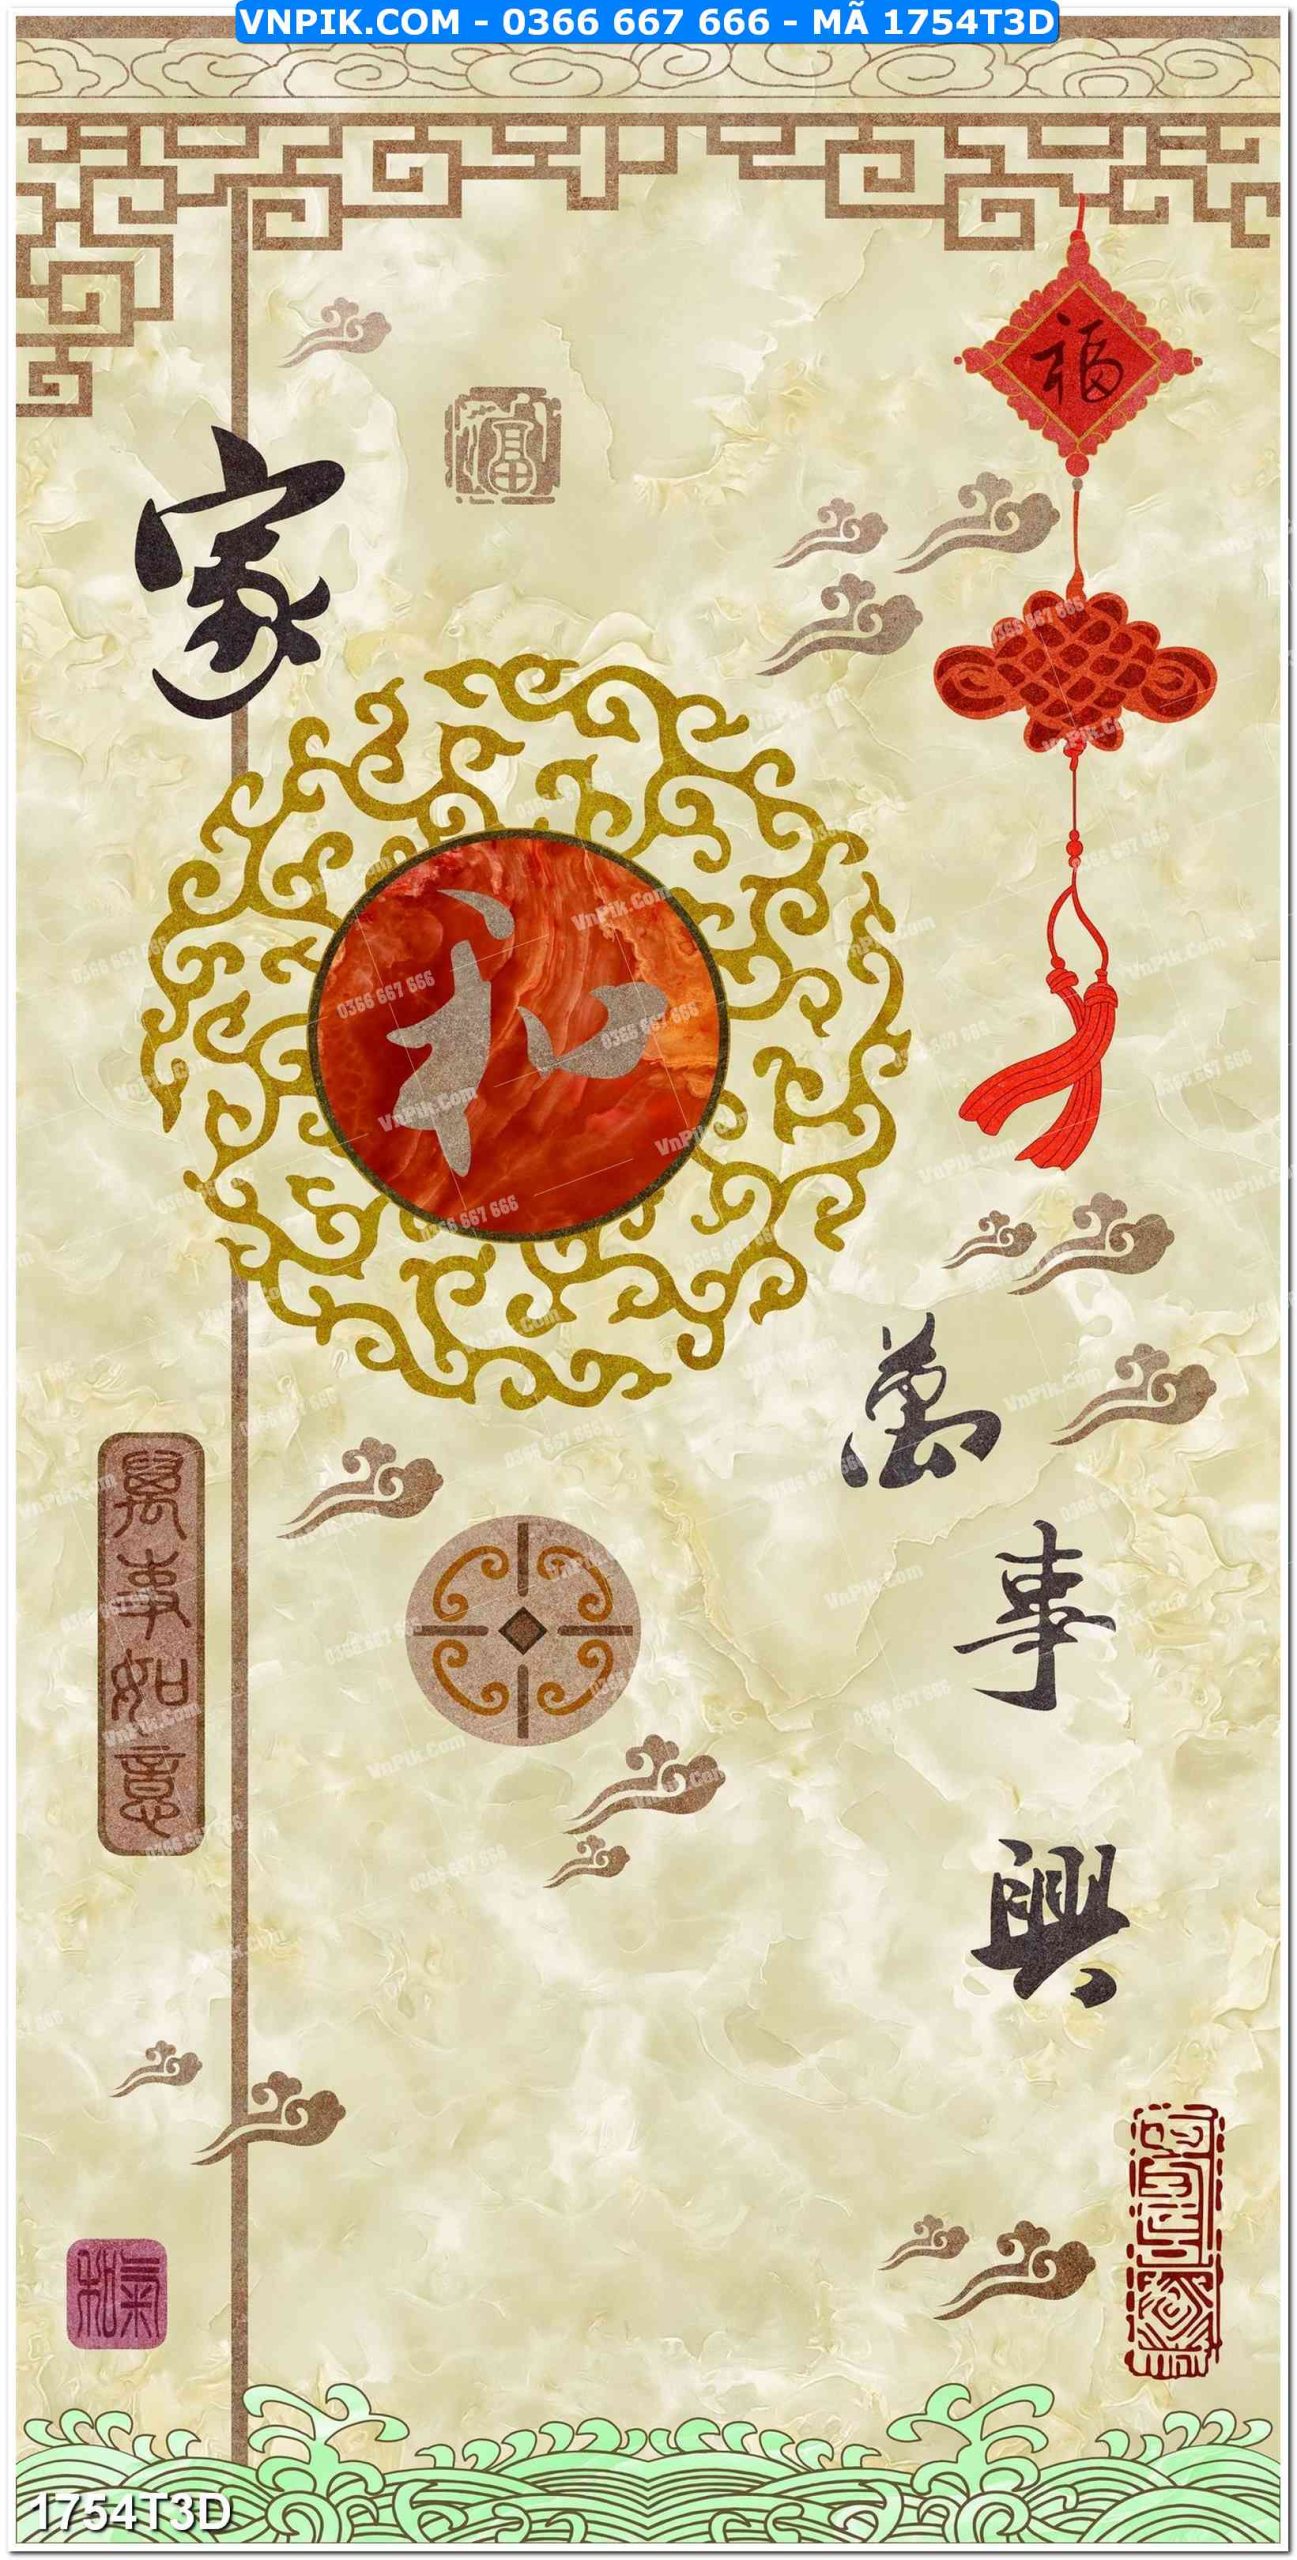 VNPIK.COM - 0366 667 666 - MÃ 1754T3D
福
福
家
和
萬
事
興
萬事如意
和氣
1754T3D